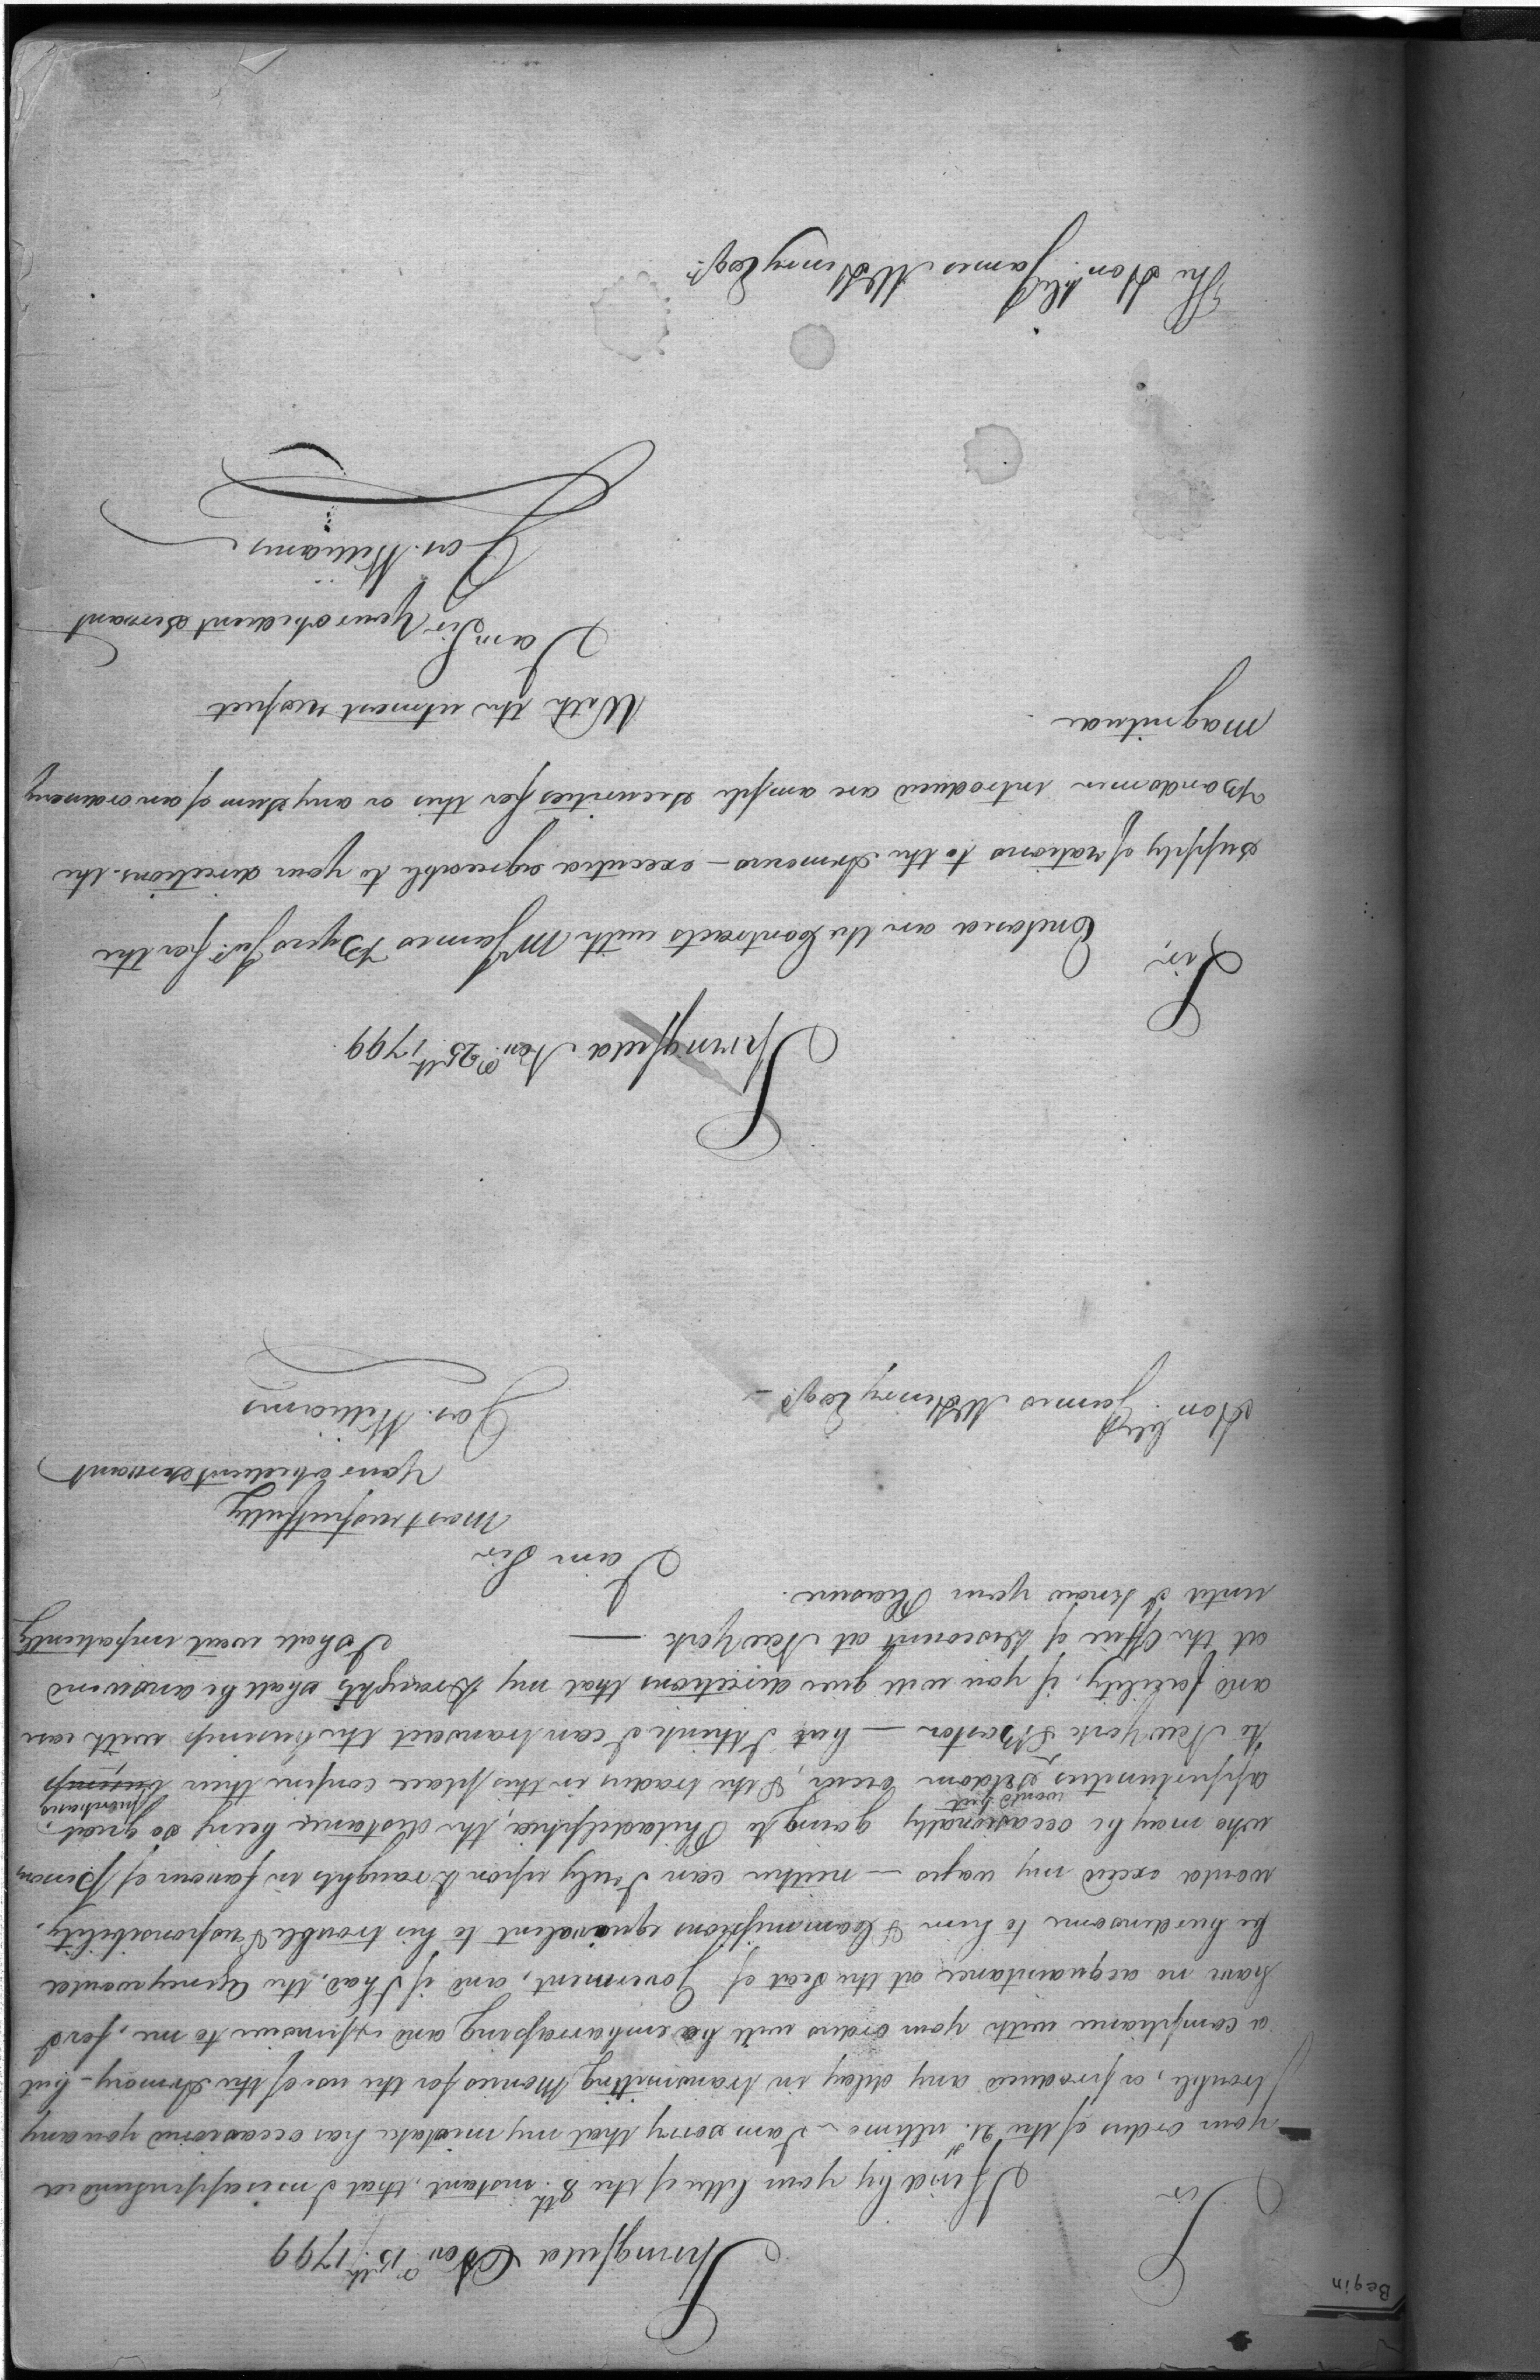 Begin
Springfield Nov.r 15th 1799
Sir
I find by your letter of the 8th instant, that I misapprehended
your orders of the 21.st ultimo - I am sorry that my mistake has occasioned you any
trouble, or produced any delay in transmitting Monies for the use of the Armory - but
a compliance with your orders will be embarrassing and expensive to me, for I
have no acquaintance at the Seat of Goverment, and if I had, the Agency would
be burdensome to him & Commissions equivalent to his trouble & responsibility,
would exceed my wages - neither can I rely upon Draughts in favour of Persons
who may be occasionally going to Philadelphia, the distance being so great,
opportunities would but seldom occur, & the traders in this place confine their business excursions,
to New York & Boston - but I think I can transact the business with ease
and facility, if you will give directions that my Draughts shall be answered
at the Office of Discount at New York — I shall wait impatiently
until I know your Pleasure.
I am Sir
most respectfully
your obedient servant
Jos. Williams
Hon.ble James McHenry Esqr. -
Springfield Nov.r 25th 1799
Sir,
Enclosed are the Contracts with Mr James Byers Jur. for the
supply of rations to the Armourers - executed agreeable to your directions. the
Bondsmen introduced are ample securities for this or any Sum of an ordinary
magnitude
With the utmost respect
I am Sir Your obedient Servant
Jos. Williams
The Hon.ble James McHenry Esqr.